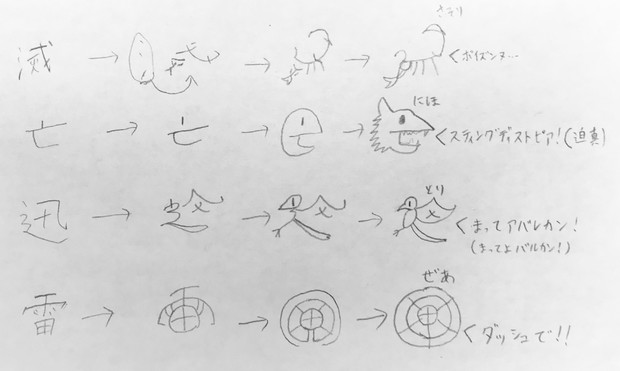 さそり
滅 → → → <ポイズンヌ…
にほ
亡 → 亡 → → <スティングディストピア!(迫真)
とり
迅 → → → <まってアバレカン!
(まってよバルカン!)
ぜあ
雷 → → → <ダッシュで!!